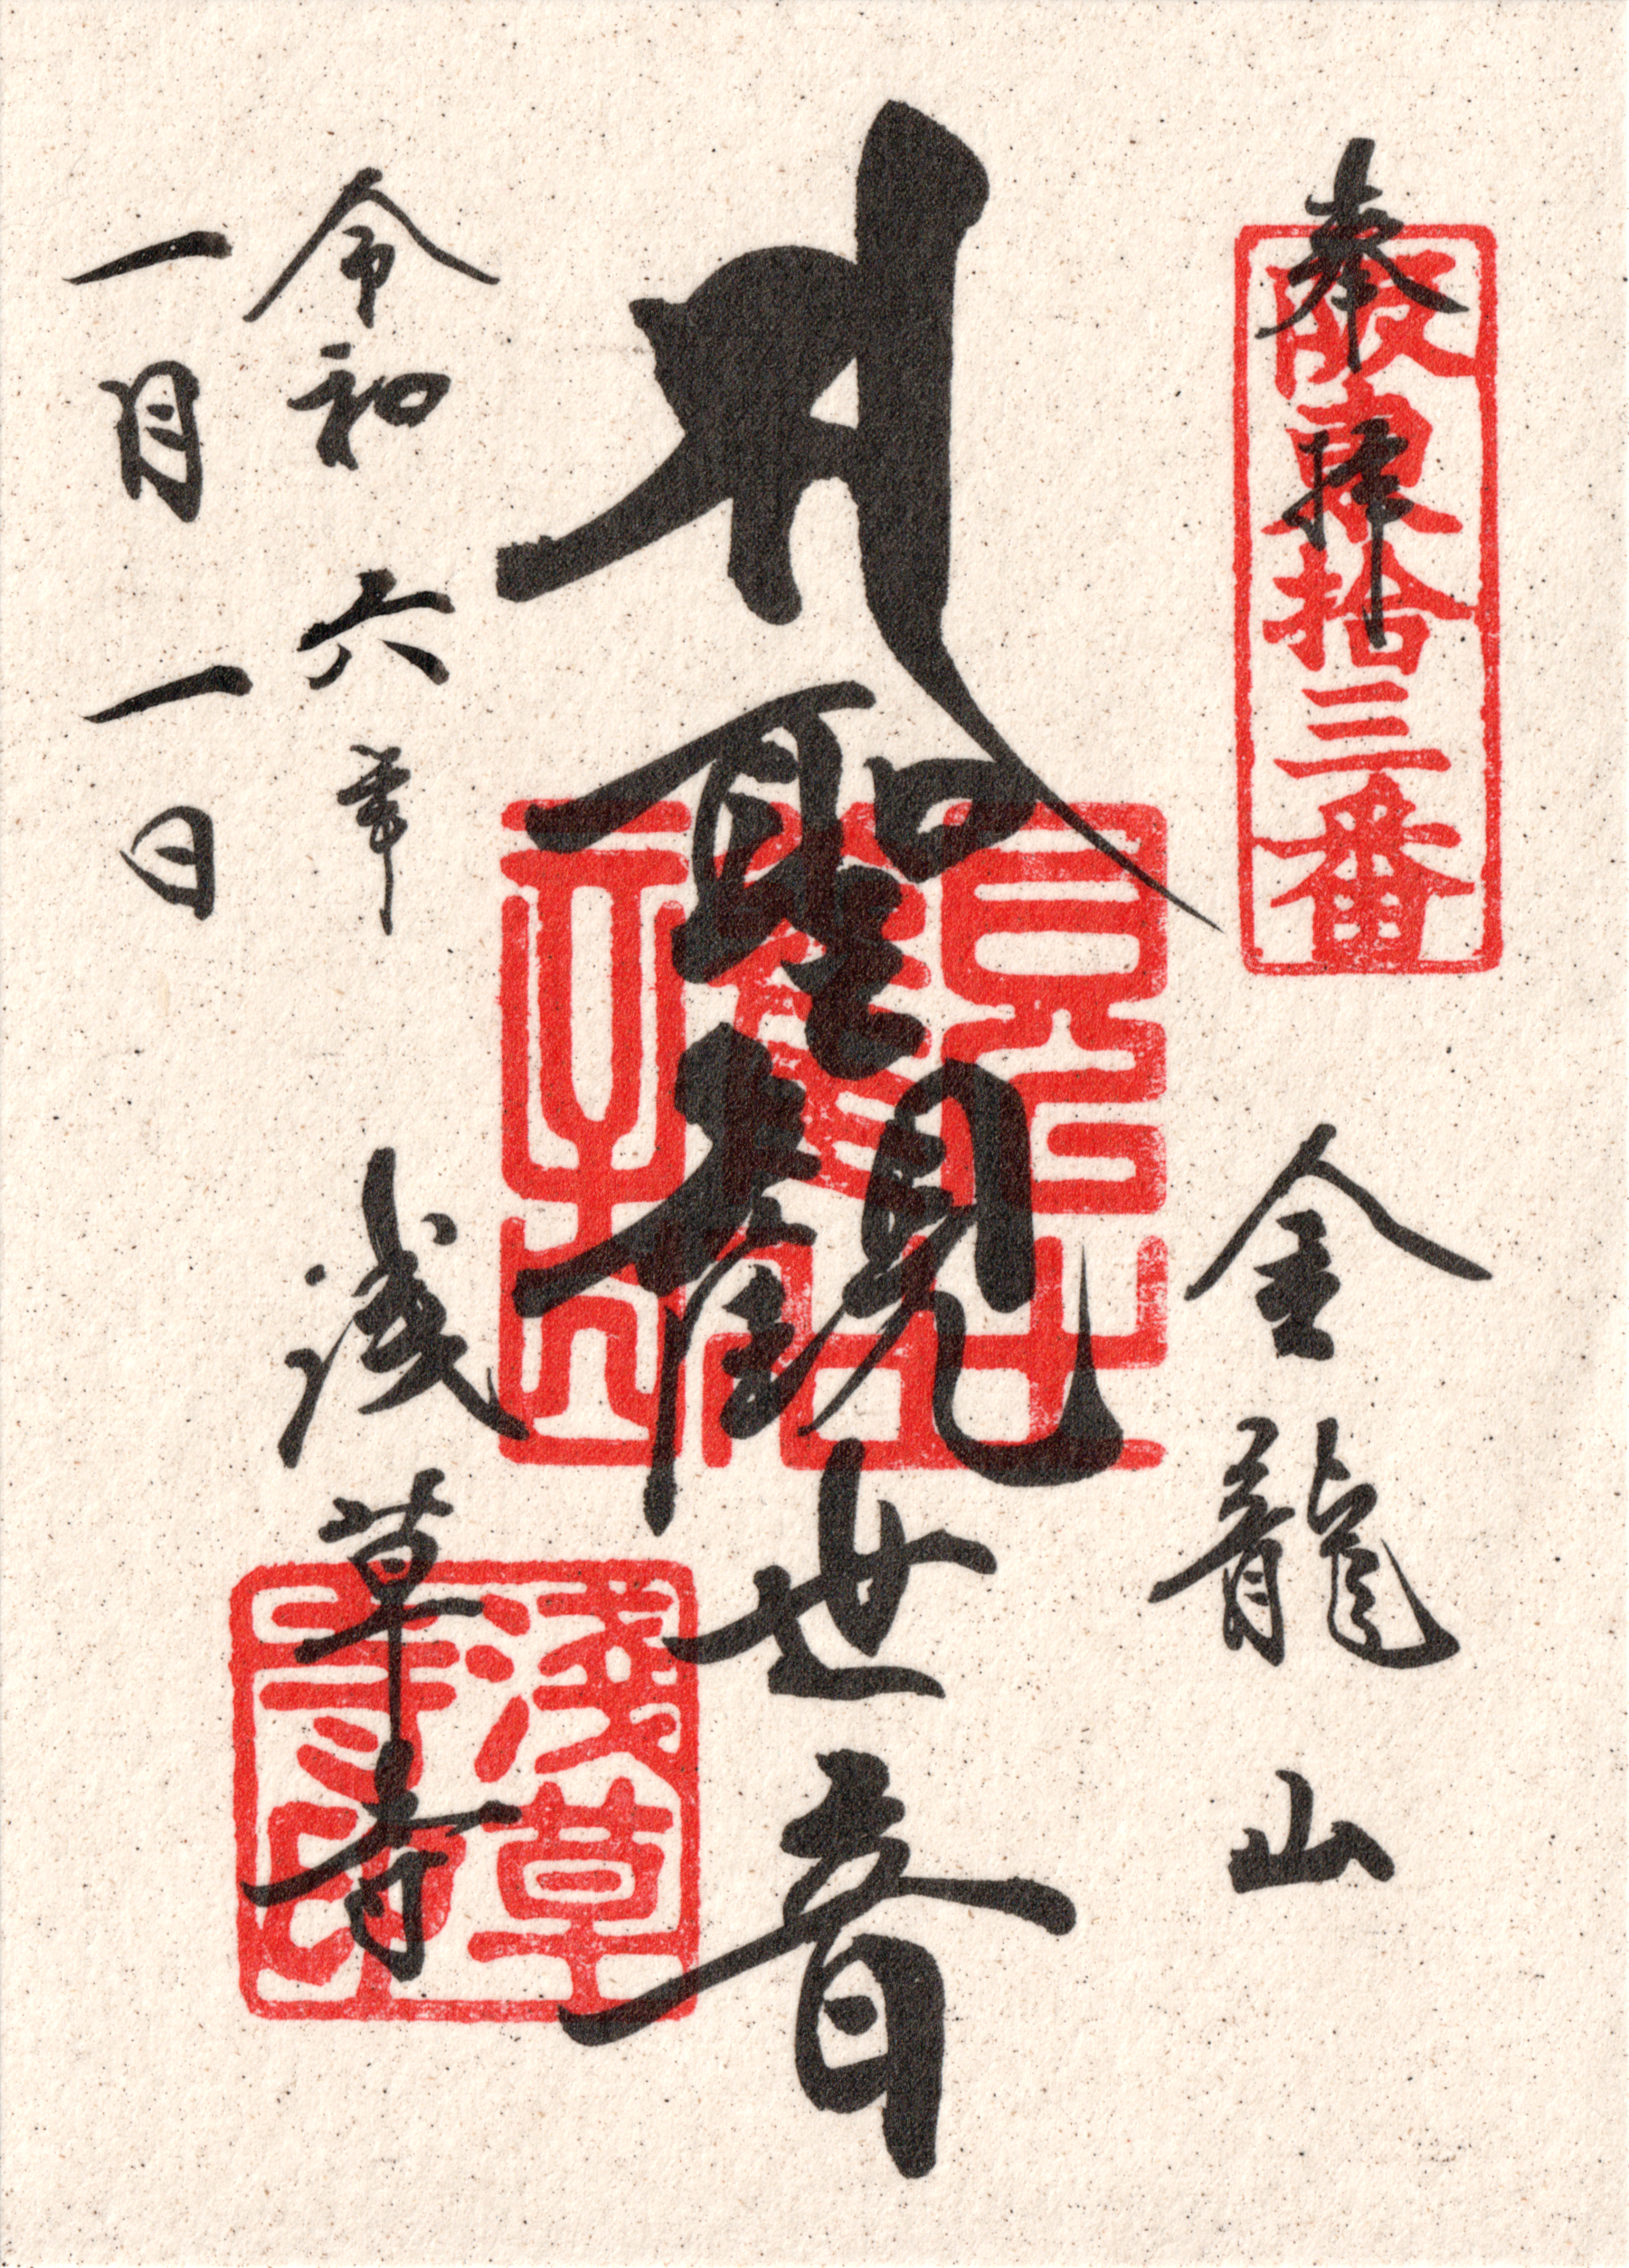 奉拝
坂東拾三番
金龍山
𑖭 聖観世音
令和六年
一月一日
浅草寺
淺草寺印